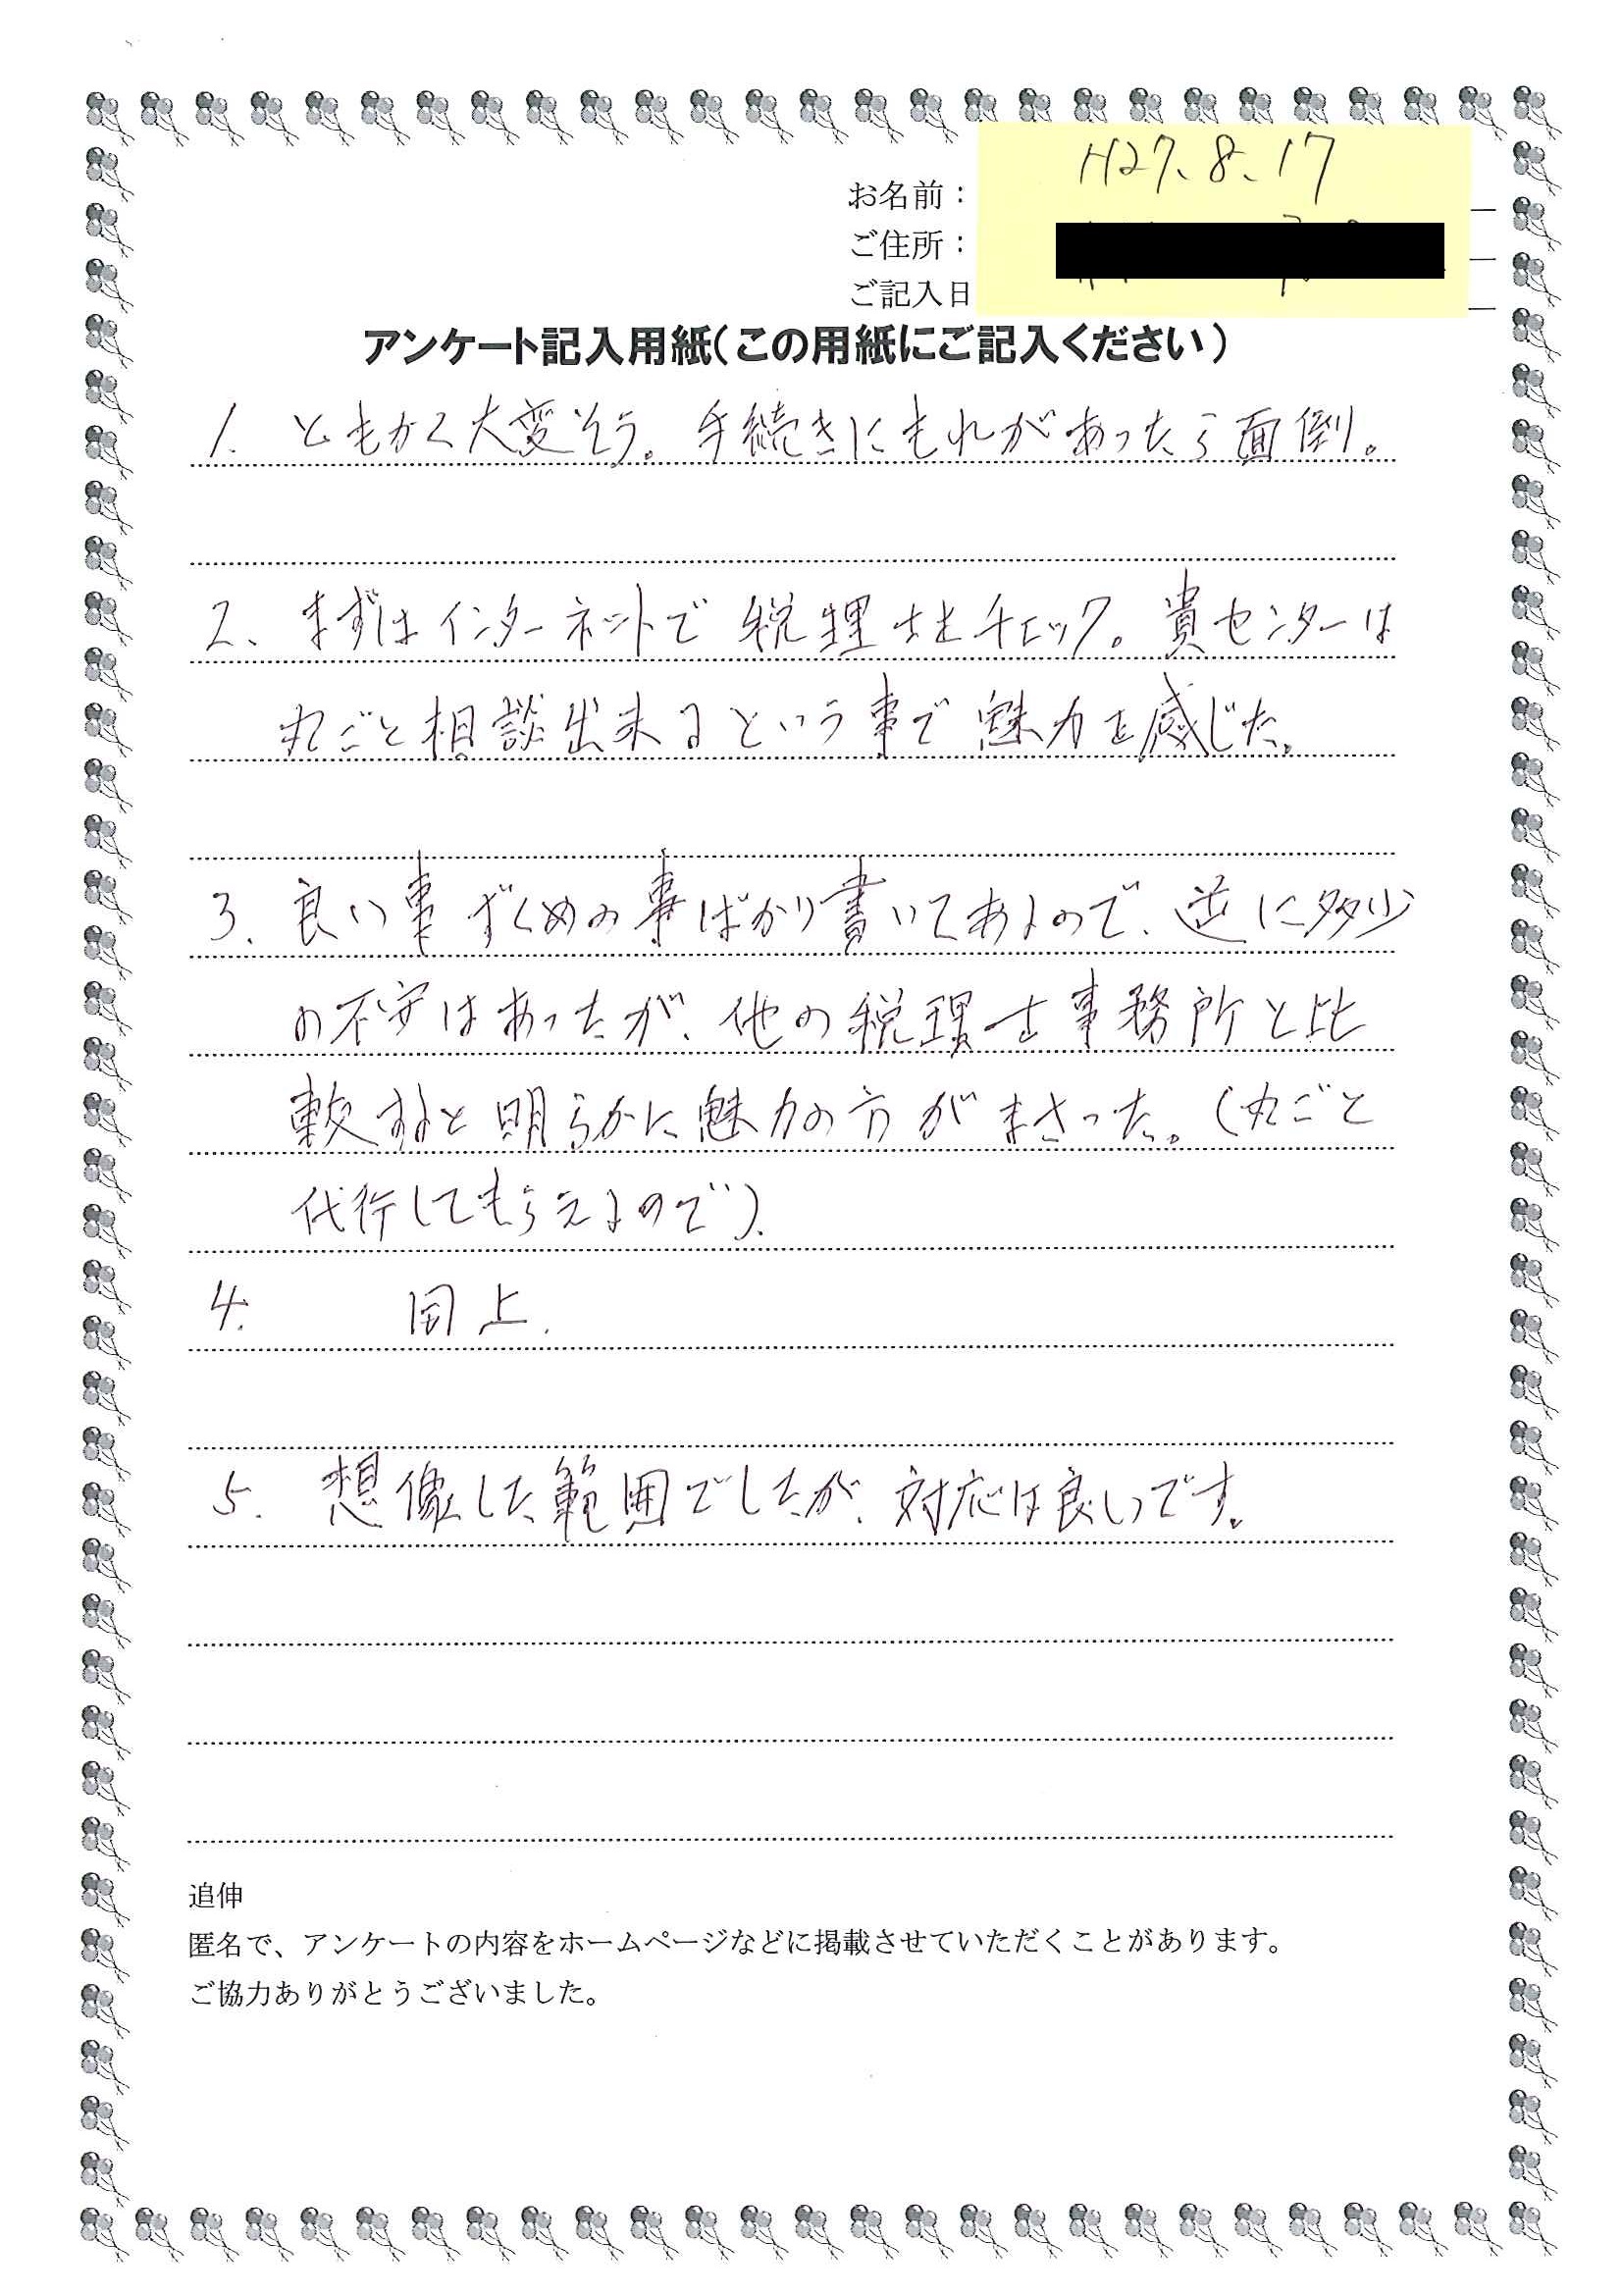 H27.8.17
お名前：
ご住所：
ご記入日
アンケート記入用紙（この用紙にご記入ください）
1. ともかく大変そう。手続きにもれがあったら面倒。
2. まずはインターネットで税理士をチェック。貴センターは
丸ごと相談出来るという事で魅力を感じた。
3. 良い事ずくめの事ばかり書いてあるので、逆に多少
の不安はあったが、他の税理士事務所と比
較すると明らかに魅力の方がまさった。（丸ごと
代行してもらえるので）.
4. 同上.
5. 想像した範囲でしたが、対応は良いです。
追伸
匿名で、アンケートの内容をホームページなどに掲載させていただくことがあります。
ご協力ありがとうございました。